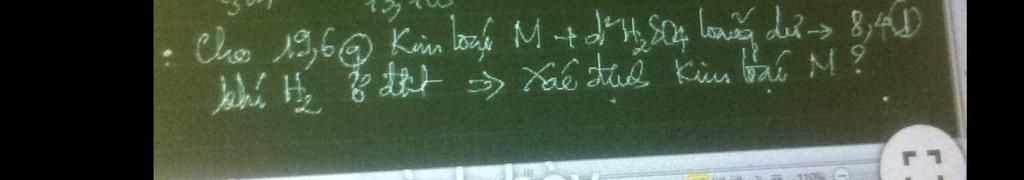 • Cho 19,6 g Kim loại M + d² H₂SO₄ loãng dư → 8,4 (l)
khí H₂ ở đktc ⇒ Xác định Kim loại M ?
110%